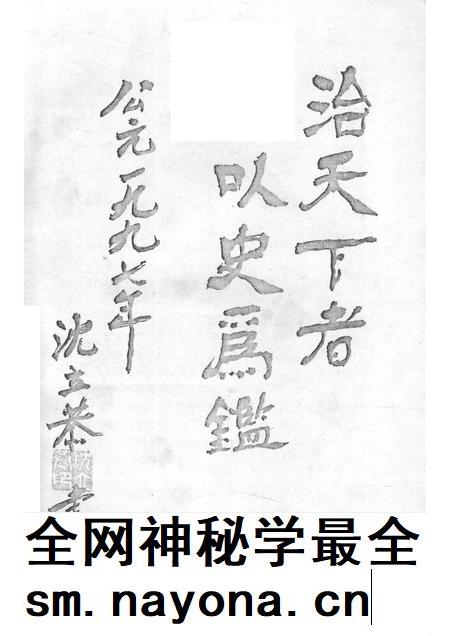 治天下者
以史爲鑑
公元一九九七年
沈立恭
全网神秘学最全
sm.nayona.cn